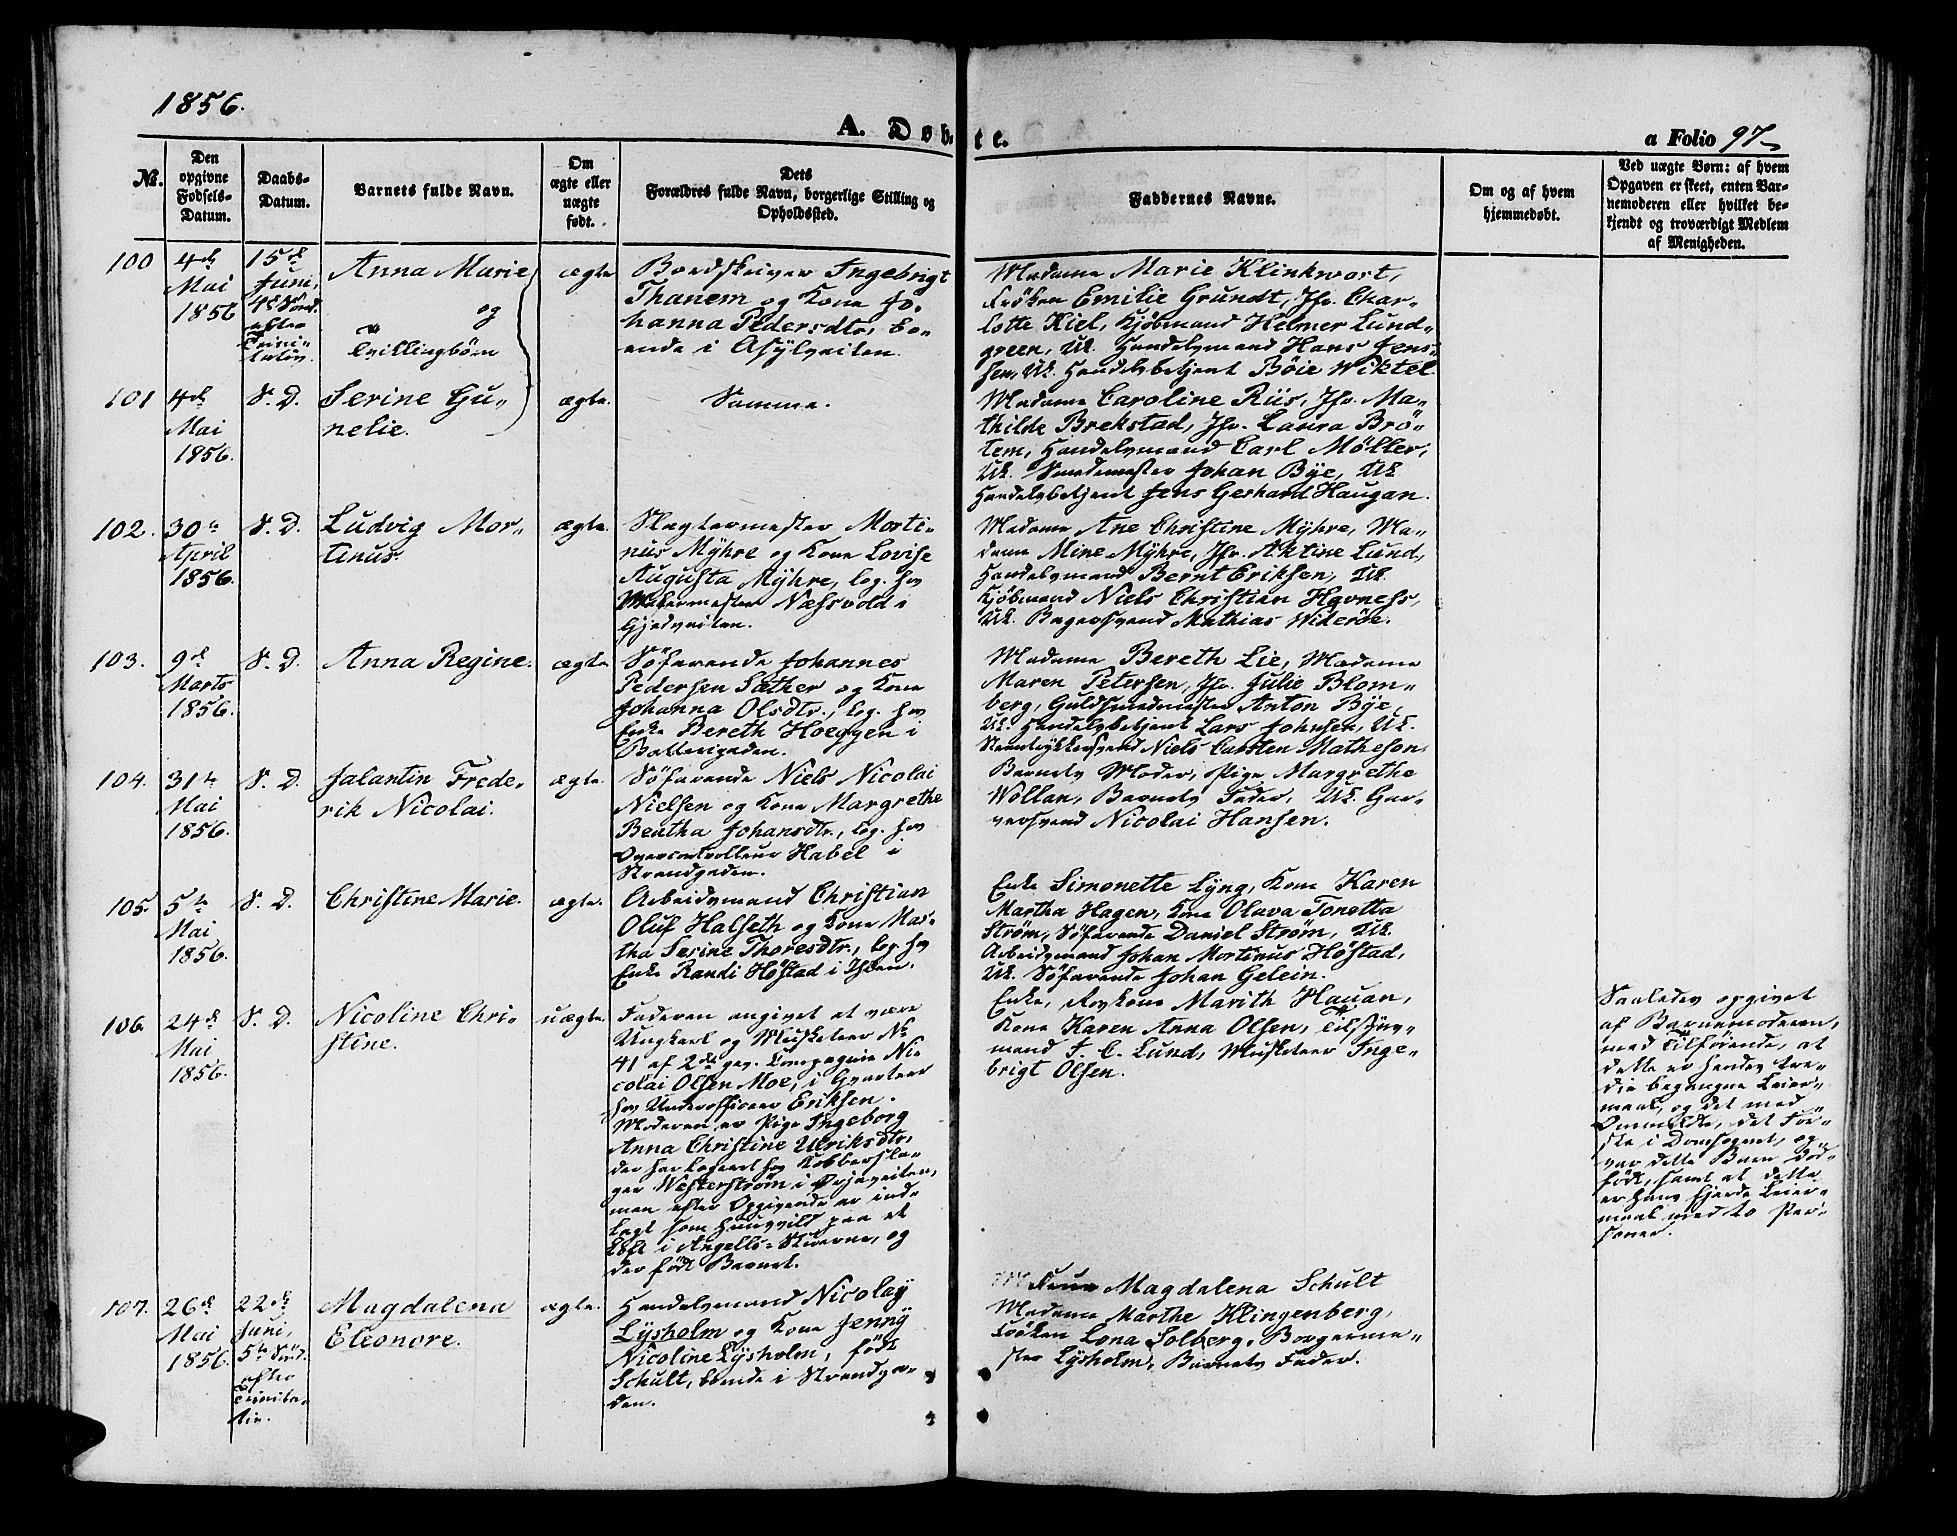 1856.
A. Døbte.
a Folio 97
No.
Den opgivne Fødsels-Datum.
Daabs-Datum.
Barnets fulde Navn.
Om ægte eller uægte født.
Dets Forældres fulde Navn, borgerlige Stilling og Opholdssted.
Faddernes Navne.
Om og af hvem hjemmedøbt.
Ved uægte Børn: af hvem Opgaven er skeet, enten Barnemoderen eller hvilket bekjendt og troværdigt Medlem af Menigheden.
100
4de
Mai
1856
15de
Juni,
4de Sönd.
efter
Trini-
tatis.
Anna Marie
og
Tvillingbörn
ægte
Bordskriver Ingebrigt
Thanem og Kone Jo-
hanna Pedersdtr, bo-
ende i Asylveiten.
Madame Marie Klinkwort,
Fröken Emilie Grundt, Jfr. Char-
lotte Kiel, Kjöbmand Helmer Lund-
green, Uk. Handelsmand Hans Jens-
sen, Uk. Handelsbetjent Böie Wiktel.
101
4de
Mai
1856.
S. D.
Serine Gu-
nelie.
ægte.
Samme.
Madame Caroline Riis, Jfr. Ma-
thilde Brekstad, Jfr. Laura Brö-
tem, Handelsmand Carl Möller,
Uk. Smedemester Johan Bye, Uk
Handelsbetjent Jens Gerhard Haugan.
102.
30te
April
1856.
S. D.
Ludvig Mor-
tinus.
ægte.
Slagtermester Morti-
nus Myhre og Kone Lovise
Augusta Myhre, log. hos
Malermester Næssvold i
Gjedveiten.
Madame Ane Christine Myhre, Ma-
dame Mine Myhre, Jfr. Aktine Lund,
Handelsmand Bernt Eriksen, Uk.
Kjöbmand Niels Christian Havness,
Uk. Bagersvend Mathias Wideröe.
103.
9de
Marts
1856.
S. D.
Anna Regine.
ægte
Söfarende Johannes
Pedersen Sæther og Kone
Johanna Olsdtr., log. hos
Enke Bereth Hoeggen i
Batterigaden.
Madame Bereth Lie, Madame
Maren Petersen, Jfr. Julie Blom-
berg, Guldsmedmester Anton Bye,
Uk. Handelsbetjent Lars Johnsen, Uk.
Steentrykkersvend Niels Carsten Matheson.
104.
31te
Mai
1856.
S. D.
Jalantin Frede-
rik Nicolai.
ægte.
Söfarende Niels Nicolai
Nielsen og Kone Margrethe
Beatha Johansdtr., log. hos
Overcontrolleur Habel i
Strandgaden.
Barnets Moder, Pige Margrethe
Wollan, Barnets Fader, Uk. Gar-
versvend Nicolai Hansen.
105.
5te
Mai
1856.
S. D.
Christine Marie.
ægte.
Arbeidsmand Christian
Oluf Halseth og Kone Mar-
tha Serine Thoresdtr., log. hos
Enke Randi Höstad i Ihlen.
Enke Simonette Lyng, Kone Karen
Martha Hagen, Kone Olava Tonetta
Ström, Söfarende Daniel Ström, Uk.
Arbeidsmand Johan Mortinus Höstad,
Uk. Söfarende Johan Gelein.
106
24de
Mai
1856.
S. D.
Nicoline Chri-
stine.
uægte.
Faderen angivet at være
Ungkarl og Musketeer No
41 af 2det gev. Compagnie Ni-
colai Olsen Moe, i Qvarteer
hos Underofficeer Eriksen.
Moderen er Pige Ingeborg
Anna Christine Ulriksdtr,
der har logeret hos Kobbersla-
ger Westerström i Örjaveiten,
men efter Opgivende er ind-
lagt som huusvild paa et
Loft i Angells-Stuerne, og
der födt Barnet.
Enke, Kone Marith Hauan,
Kone Karen Anna Olsen, Tilsyns-
mand J. C. Lund, Musketeer Inge-
brigt Olsen.
Saaledes opgivet
af Barnemoderen,
med Tilföiende, at
dette er hendes tre-
die begangne Leier-
maal, og det med
Ommeldte, det För-
ste i Domsognet, og
var dette Barn död-
födt, samt at dette
er hans fjerde Leier-
maal med to Per-
soner.
107.
26de
Mai
1856.
22de
Juni,
5te Sönd.
efter
Trinita-
tis.
Magdalena
Eleonore.
ægte.
Handelsmand Nicolay
Lysholm og Kone Jenny
Nicoline Lysholm, födt
Schult, boende i Strandga-
den.
Frue Magdalena Schult
Madame Marthe Klingenberg,
Fröken Lona Solberg, Borgerme-
ster Lysholm, Barnets Fader.